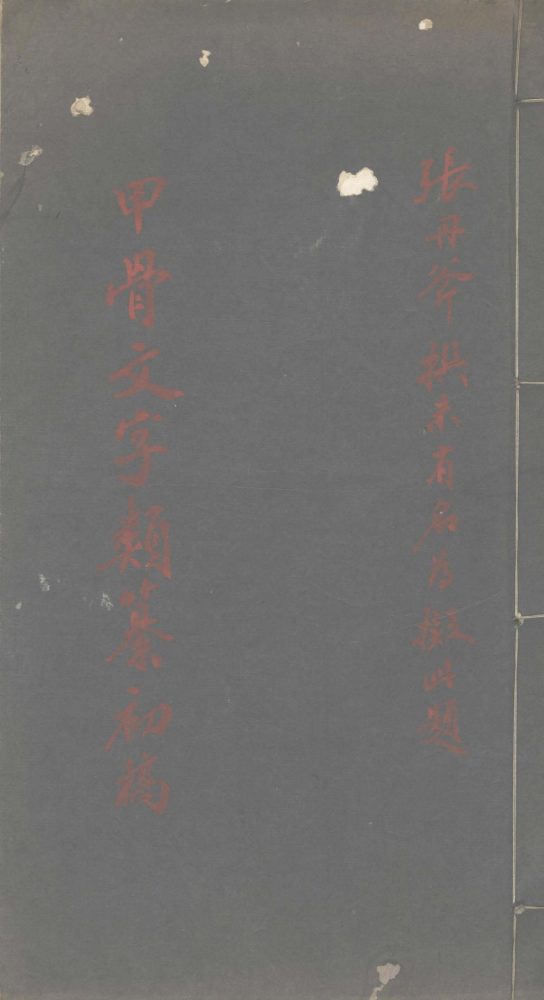 張丹斧撰未有名為擬此題
甲骨文字類纂初稿